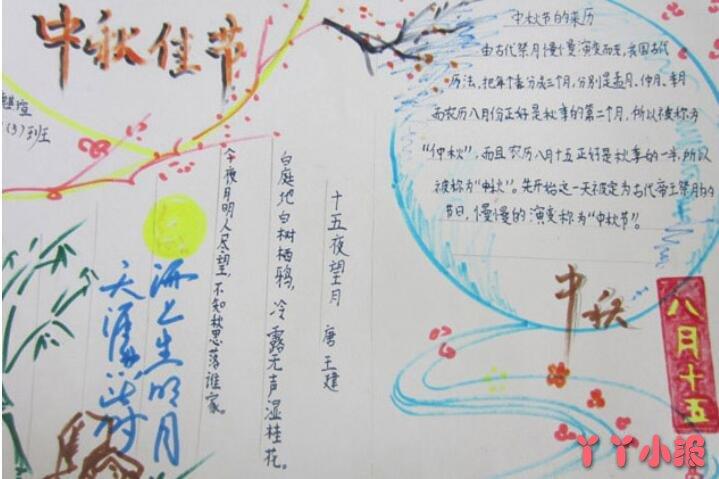 中秋佳节
(3)班
中秋节的来历
由古代祭月慢慢演变而来,我国古代
历法,把每个季分成三个月,分别是孟月、仲月、季月
而农历八月份正好是秋季的第二个月,所以被称为
“仲秋”,而且农历八月十五正好是秋季的一半,所以
被称为“中秋”。先开始这一天被定为古代帝王祭月的
节日,慢慢的演变称为“中秋节”。
十五夜望月 唐 王建
白庭地白树栖鸦,冷露无声湿桂花。
今夜月明人尽望,不知秋思落谁家。
海上生明月
天涯共此时
中秋
八月十五
丫丫小报